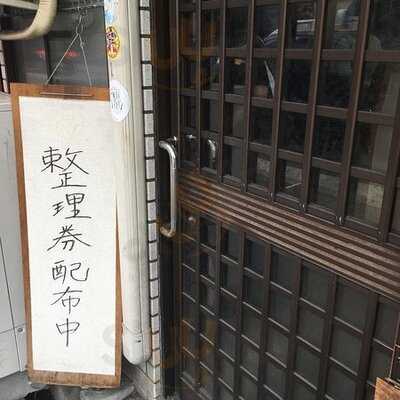 整理券配布中